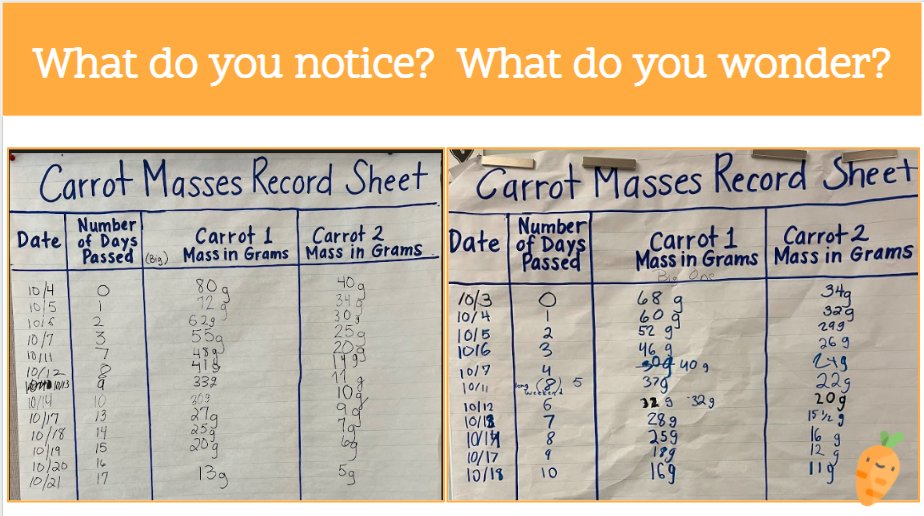 What do you notice? What do you wonder?
Carrot Masses Record Sheet
Date Number of Days Passed (Big) Carrot 1 Mass in Grams Carrot 2 Mass in Grams
10/4 0 80g 40g
10/5 1 72g 34g
10/6 2 62g 30g
10/7 3 55g 25g
10/11 7 48g 20g
10/12 8 41g
10/13 9 33g 11g
10/14 10 10g
10/17 13 27g 9g
10/18 14 25g 7g
10/19 15 20g 6g
10/20 16
10/21 17 13g 5g
Carrot Masses Record Sheet
Date Number of Days Passed Carrot 1 Mass in Grams Big One Carrot 2 Mass in Grams
10/3 0 68 g 34g
10/4 1 60 g 32g
10/5 2 52 g 29g
10/6 3 46 g 26g
10/7 4 40g
10/11 long weekend (8) 5 37g 22g
10/12 6 32g 32g 20g
10/13 7 28g 15 1/2 g
10/14 8 25g 16 g
10/17 9 12 g
10/18 10 16g 11g